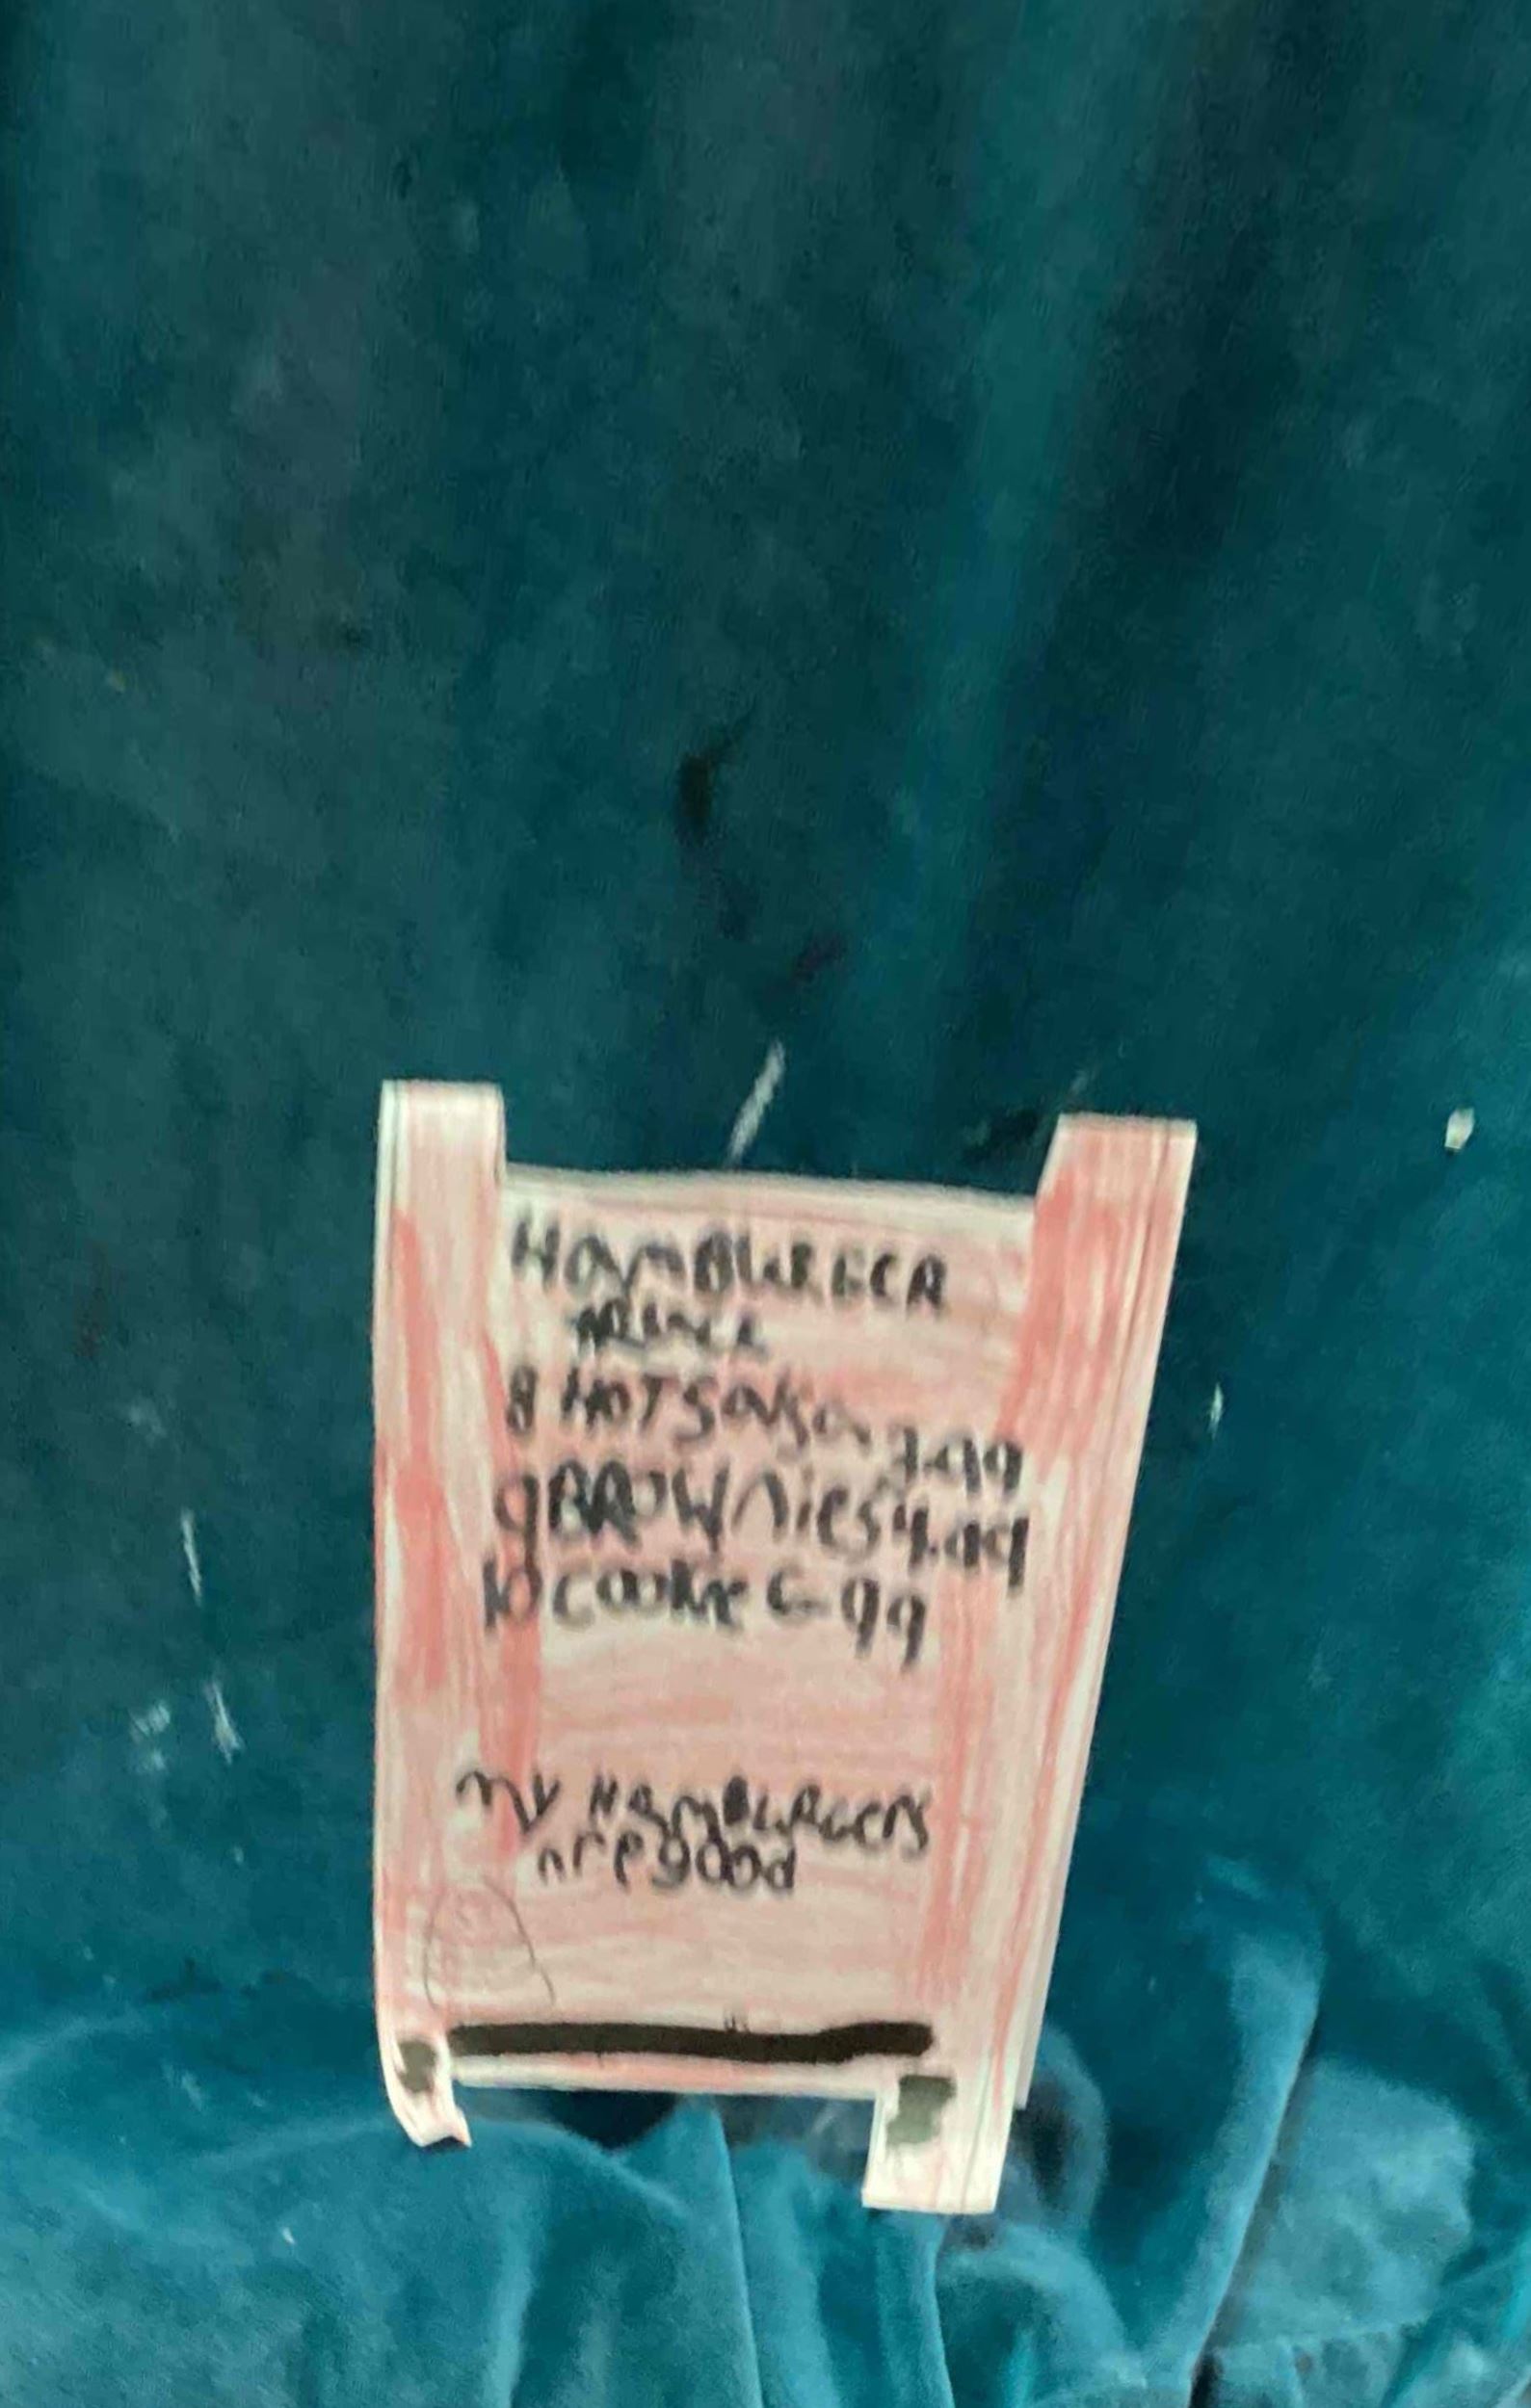 HamBURGER
8 HOT Salsa 7.99
9 BROWnies 4.99
10 cookie 6.99
my HamBURGers
are good